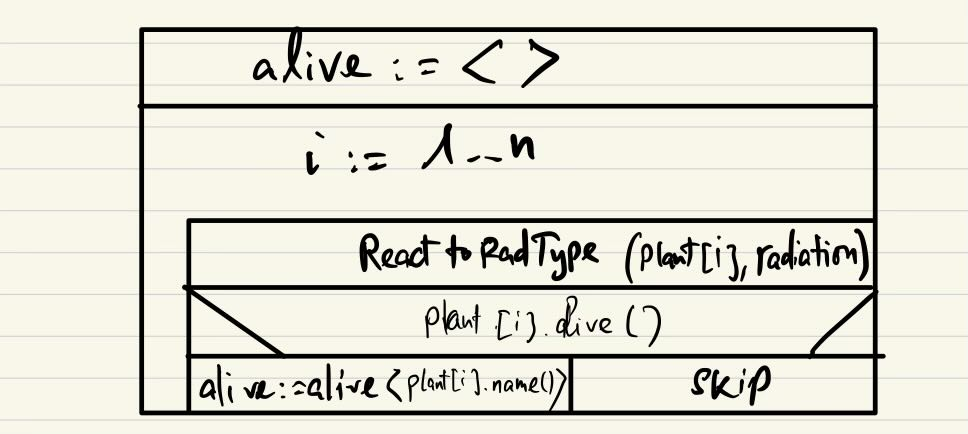 alive := < >
i := 1..n
React to RadType (plant[i], radiation)
plant[i].alive()
alive:=alive<plant[i].name()>
skip